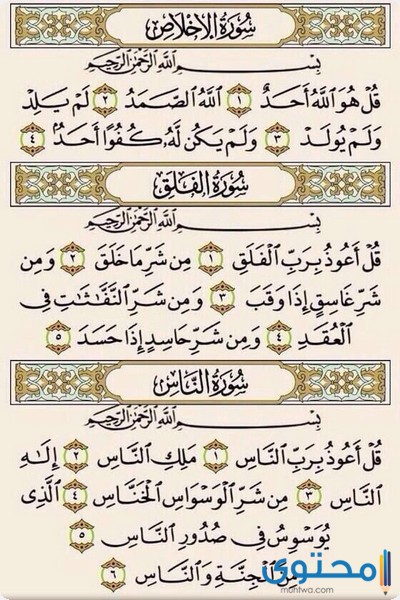 سُورَةُ الْإِخْلَاصِ
بِسْمِ اللَّهِ الرَّحْمَٰنِ الرَّحِيمِ
قُلْ هُوَ اللَّهُ أَحَدٌ ١ اللَّهُ الصَّمَدُ ٢ لَمْ يَلِدْ
وَلَمْ يُولَدْ ٣ وَلَمْ يَكُن لَّهُۥ كُفُوًا أَحَدٌۢ ٤
سُورَةُ الْفَلَقِ
بِسْمِ اللَّهِ الرَّحْمَٰنِ الرَّحِيمِ
قُلْ أَعُوذُ بِرَبِّ الْفَلَقِ ١ مِن شَرِّ مَا خَلَقَ ٢ وَمِن
شَرِّ غَاسِقٍ إِذَا وَقَبَ ٣ وَمِن شَرِّ النَّفَّاثَاتِ فِي
الْعُقَدِ ٤ وَمِن شَرِّ حَاسِدٍ إِذَا حَسَدَ ٥
سُورَةُ النَّاسِ
بِسْمِ اللَّهِ الرَّحْمَٰنِ الرَّحِيمِ
قُلْ أَعُوذُ بِرَبِّ النَّاسِ ١ مَلِكِ النَّاسِ ٢ إِلَٰهِ
النَّاسِ ٣ مِن شَرِّ الْوَسْوَاسِ الْخَنَّاسِ ٤ الَّذِي
يُوَسْوِسُ فِي صُدُورِ النَّاسِ ٥
مِنَ الْجِنَّةِ وَالنَّاسِ ٦
محتوى
muhtwa.com